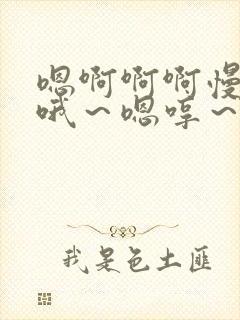 嗯啊啊啊慢
哦～嗯哼～
我是色土匪